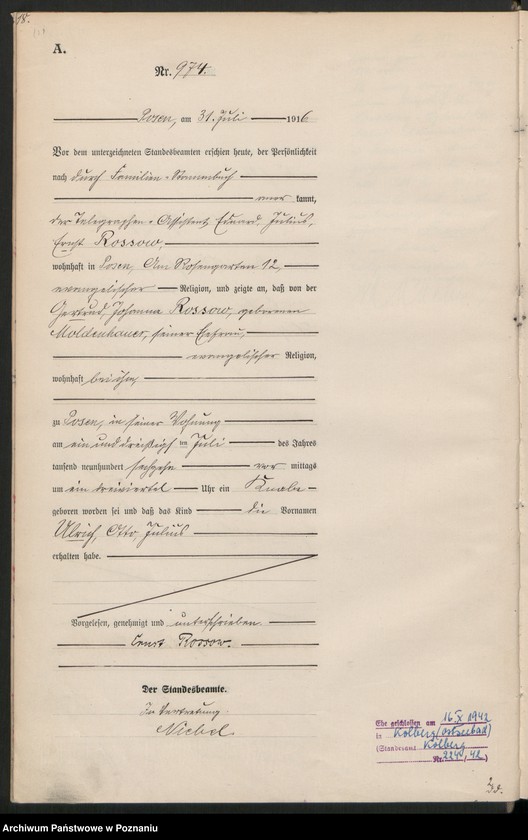 18.
A.
Nr. 974.
Posen, am 31. Juli 1916
Vor dem unterzeichneten Standesbeamten erschien heute, der Persönlichkeit
nach durch Familien-Stammbuch
aner kannt,
der Telegraphen-Assistent Eduard, Julius,
Ernst Rossow,
wohnhaft in Posen, Am Rosengarten 12,
evangelischer Religion, und zeigte an, daß von der
Gertrud, Johanna Rossow, geborenen
Moldenhauer, seiner Ehefrau,
evangelischer Religion,
wohnhaft bei ihm,
zu Posen, in seiner Wohnung
am einunddreißigsten Juli des Jahres
tausend neunhundert sechzehn vor mittags
um ein dreiviertel Uhr ein Knabe
geboren worden sei und daß das Kind die Vornamen
Ulrich, Otto, Julius
erhalten habe.
Vorgelesen, genehmigt und unterschrieben
Ernst Rossow.
Der Standesbeamte.
In Vertretung.
Ehe geschlossen am 16. X 1942
in Kolberg (Ostseebad)
(Standesamt Kolberg
Nr. 224, 42)
Archiwum Państwowe w Poznaniu